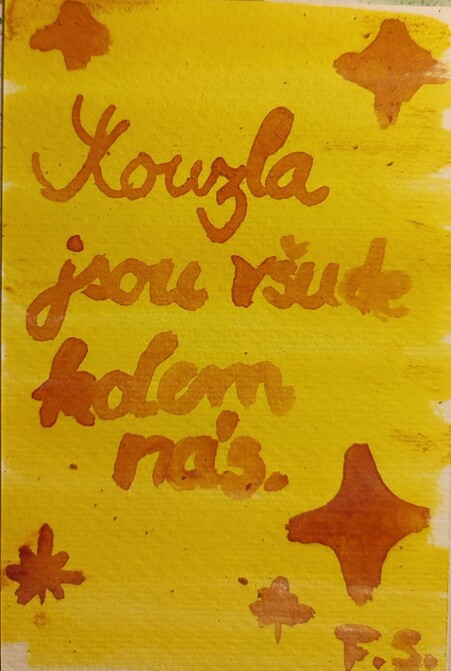 Kouzla
jsou všude
kolem
nás.
F.S.